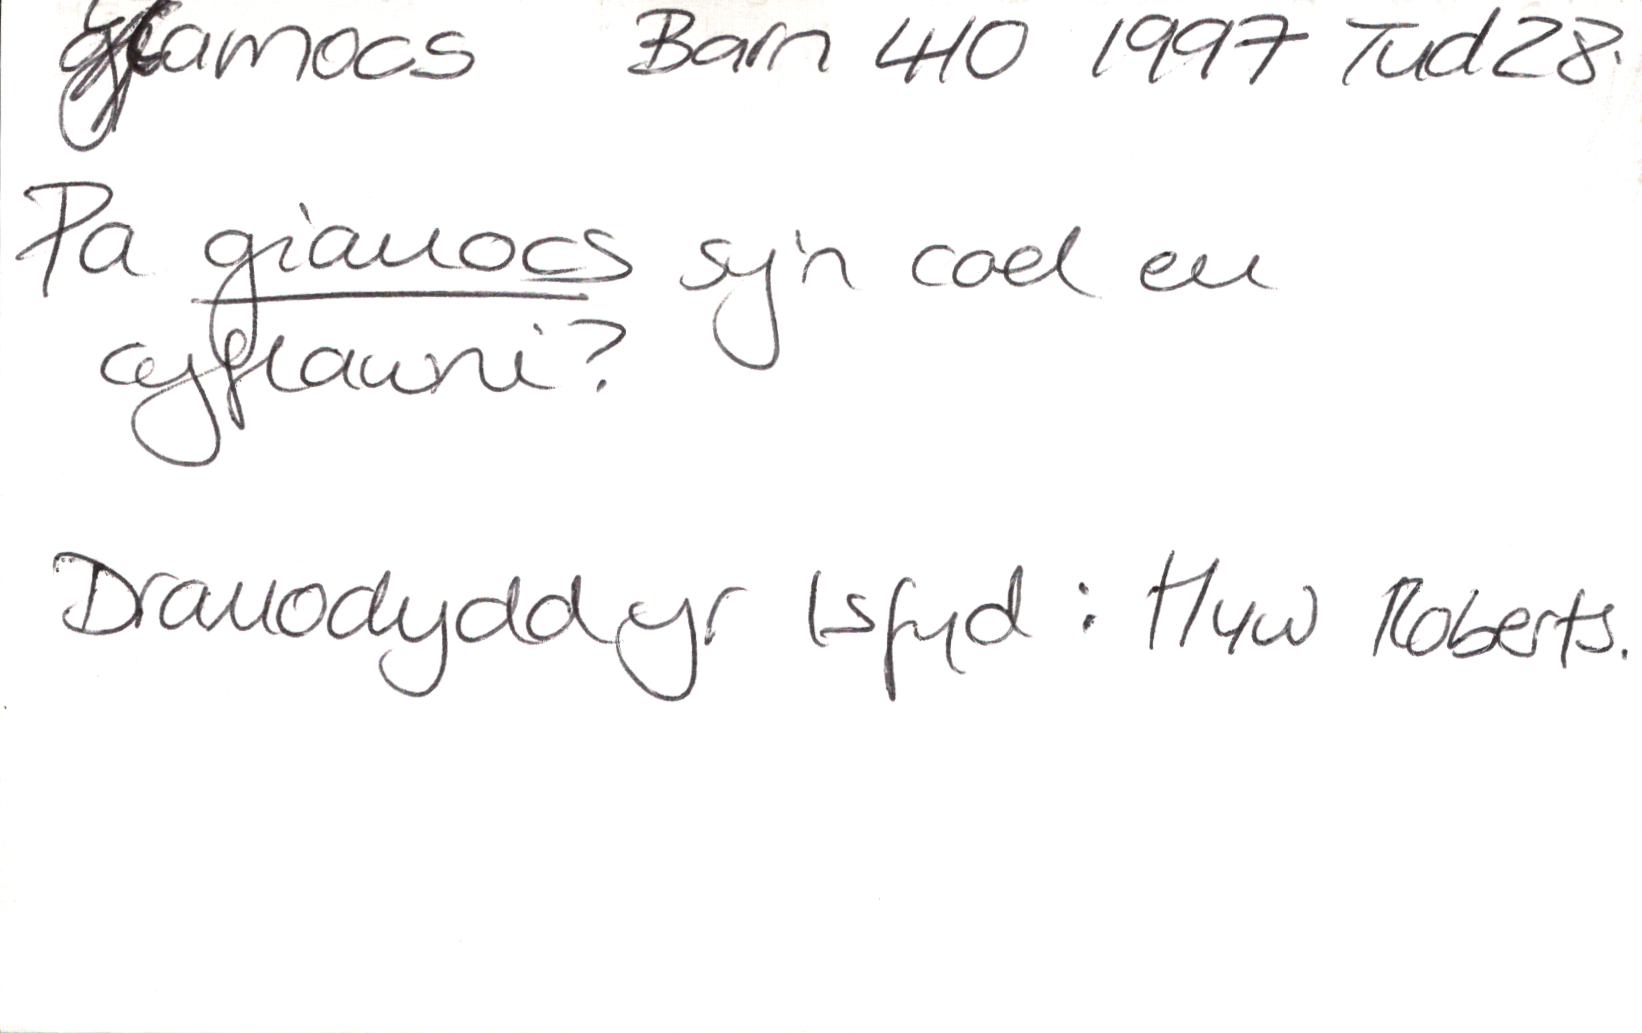 giamocs Barn 410 1997 Tud 28.
Pa giamocs sy'n cael eu
cyflawni?
Dramodydd yr Isfyd : Huw Roberts.